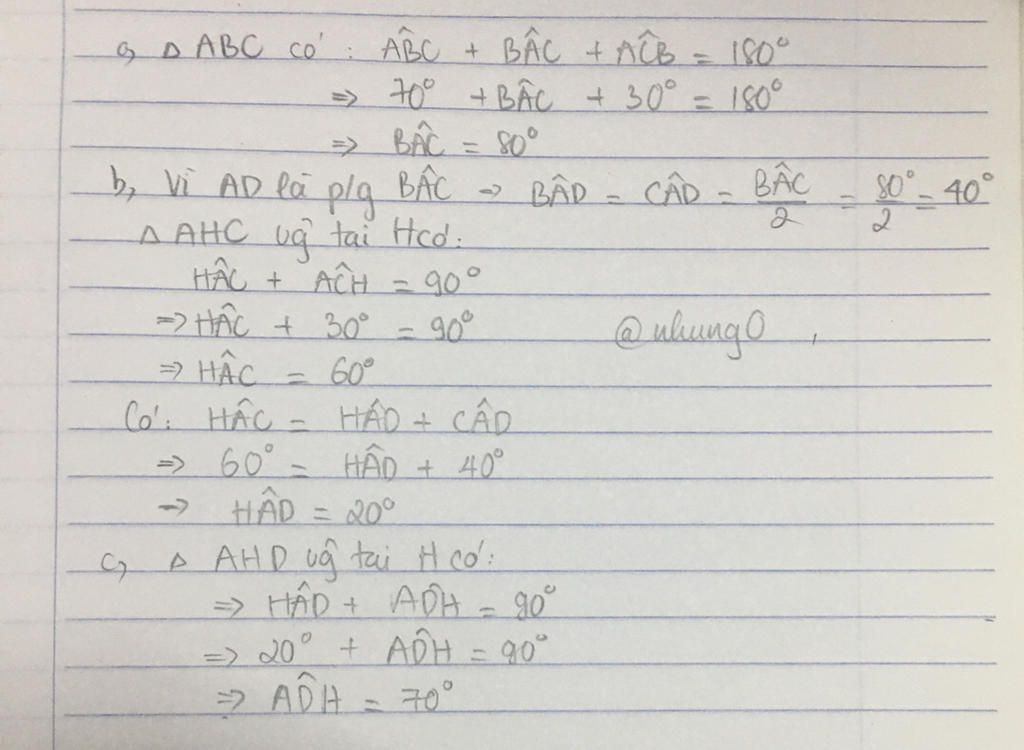 a, Δ ABC có: AB̂C + BÂC + AĈB = 180°
=> 70° + BÂC + 30° = 180°
=> BÂC = 80°
b, Vì AD là p/g BÂC => BÂD = CÂD = BÂC/2 = 80°/2 = 40°
Δ AHC vg tại H có:
HÂC + AĈH = 90°
=> HÂC + 30° = 90°
@nhung0
=> HÂC = 60°
Có: HÂC = HÂD + CÂD
=> 60° = HÂD + 40°
=> HÂD = 20°
c, Δ AHD vg tại H có:
=> HÂD + AD̂H = 90°
=> 20° + AD̂H = 90°
=> AD̂H = 70°